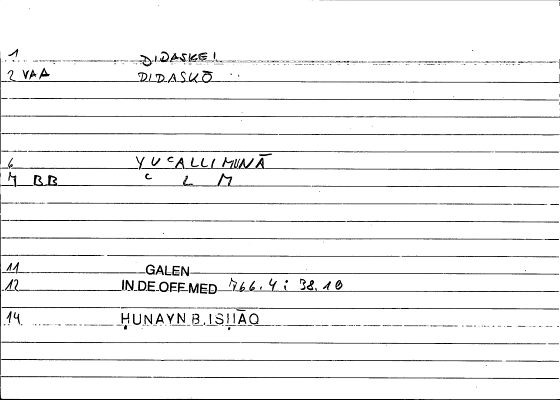 1 DIDASKEI
2 VAA DIDASKŌ
6 YUᶜALLIMUNĀ
7 BB ᶜ L M
11 GALEN
12 IN.DE.OFF.MED 766.4 : 38.10
14 ḤUNAYN B.ISḤĀQ